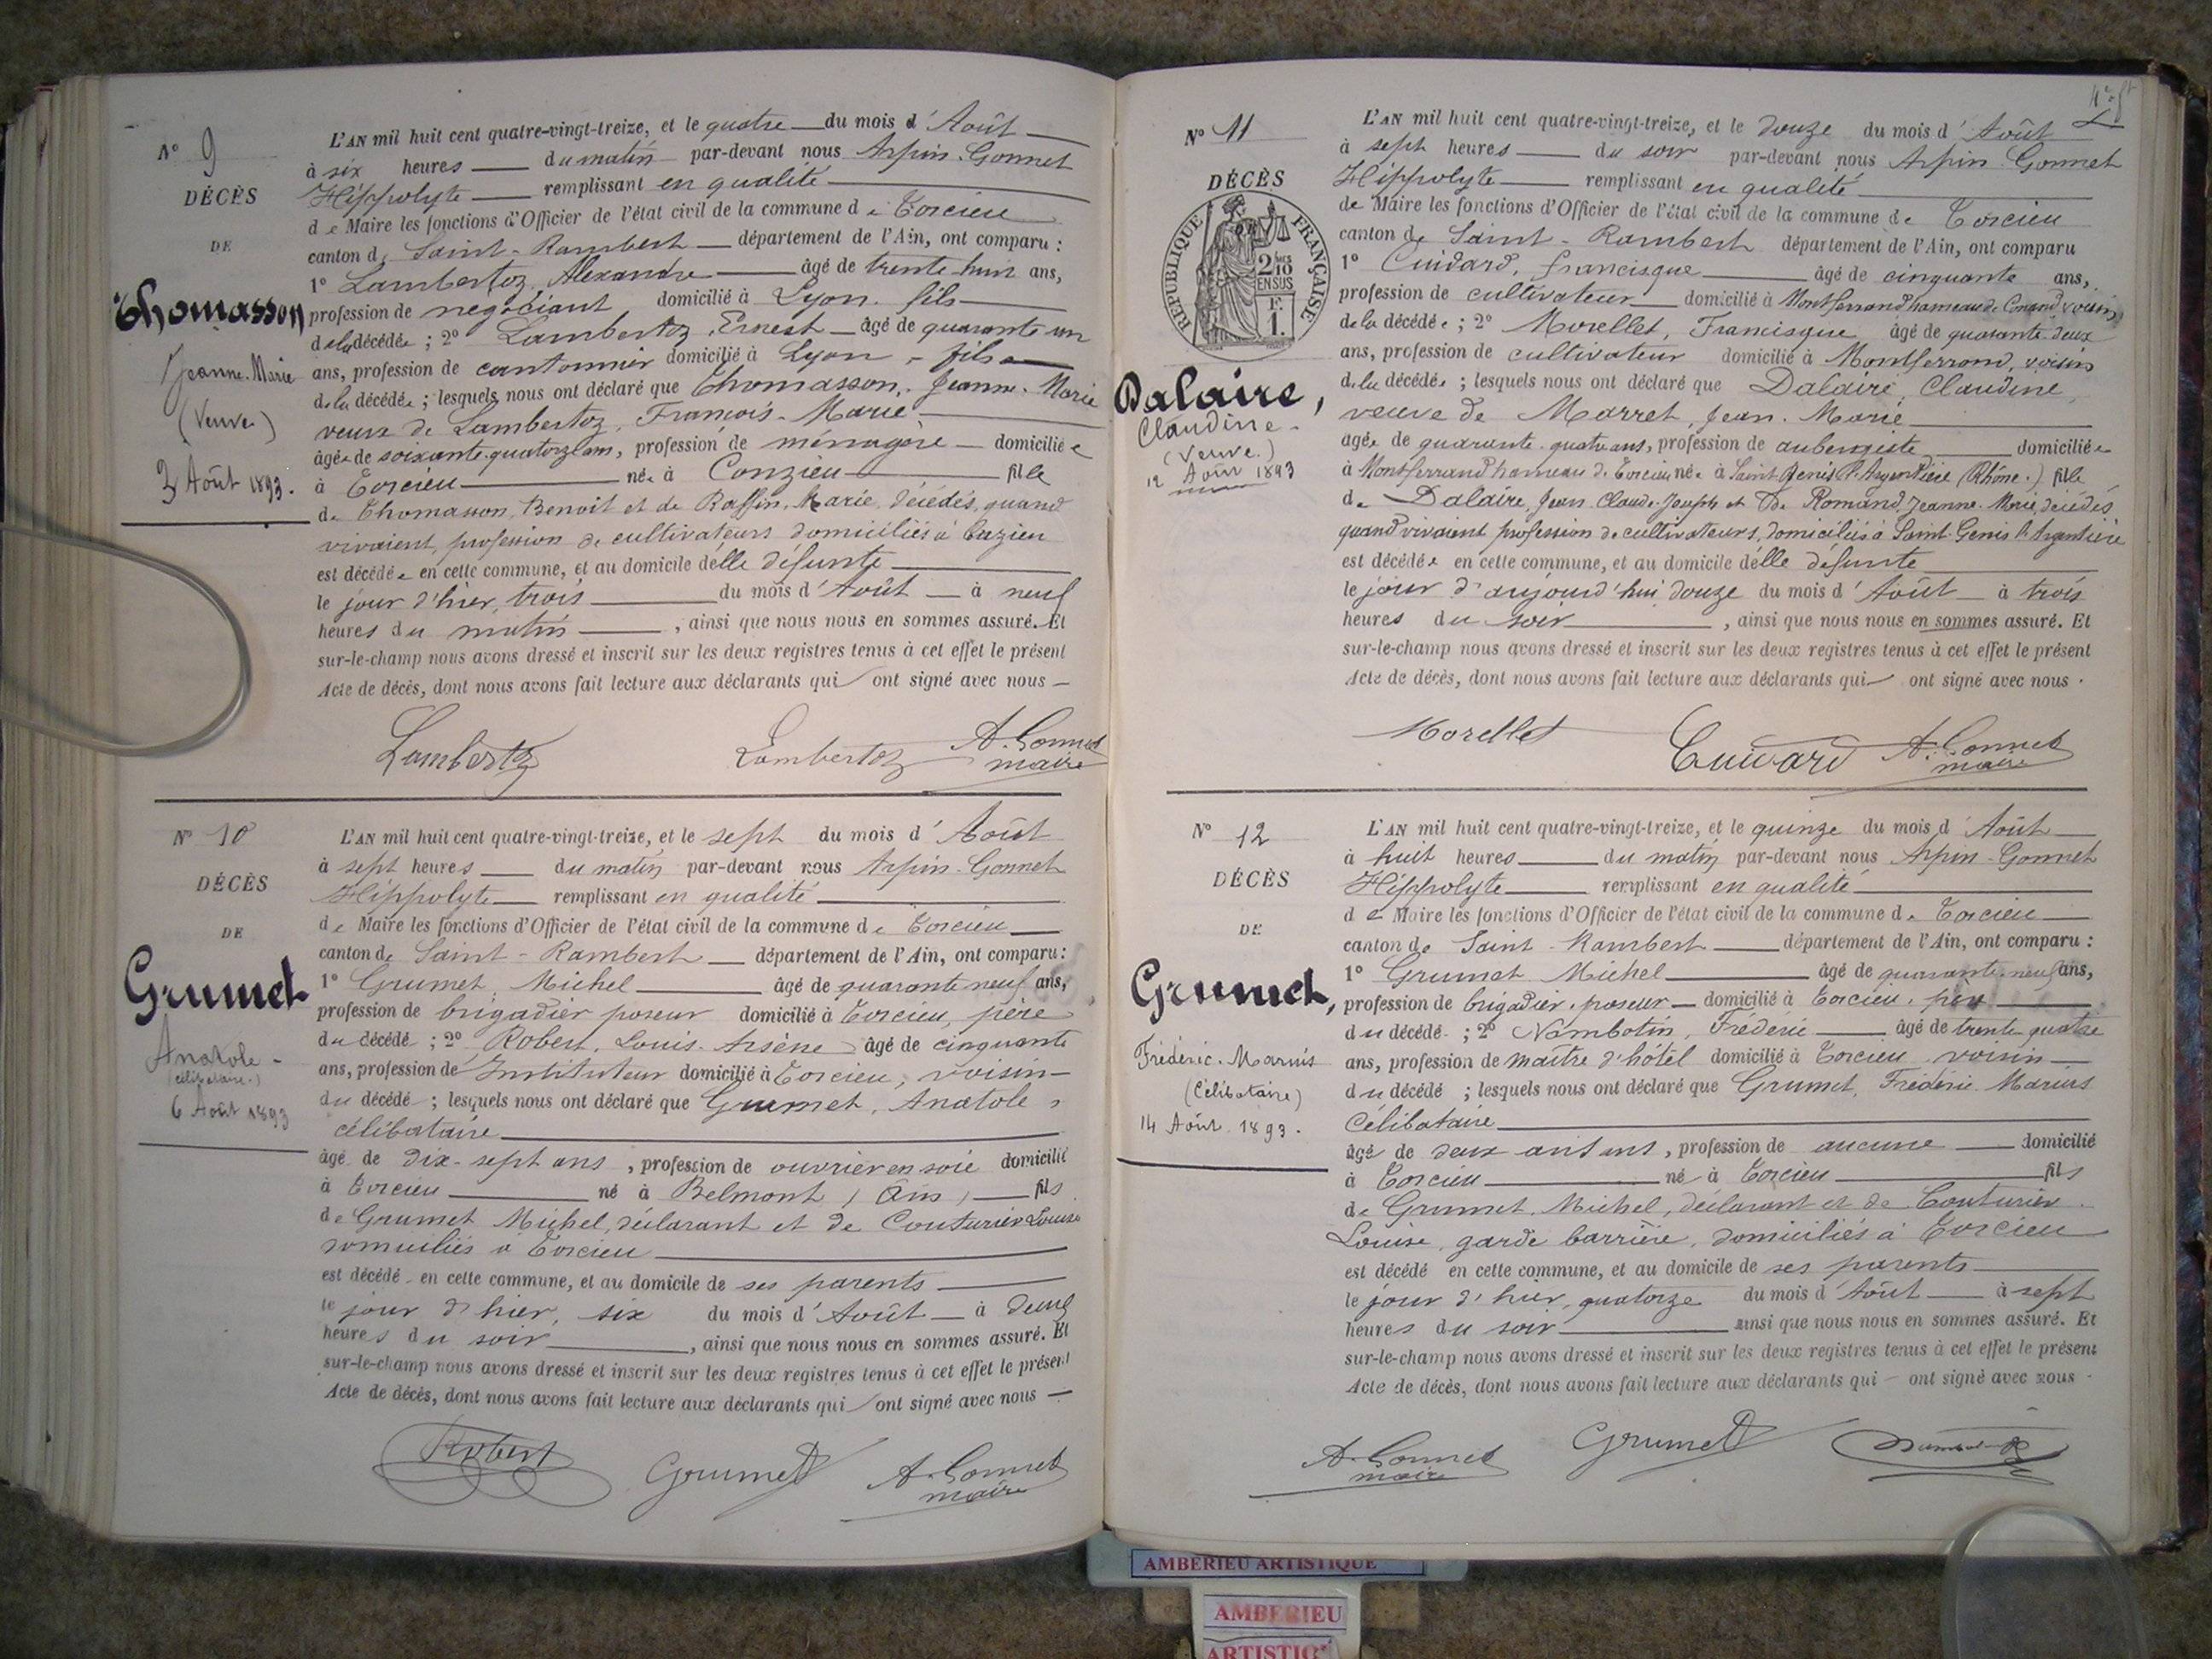 N° 9
DÉCÈS
DE
Thomasson
Jeanne-Marie
(Veuve)
3 Août 1893.
L'AN mil huit cent quatre-vingt-treize, et le quatre du mois d'Août
à six heures du matin par-devant nous Arpin-Gonnet
Hippolyte remplissant en qualité
de Maire les fonctions d'Officier de l'état civil de la commune de Torcieu
canton de Saint-Rambert département de l'Ain, ont comparu :
1° Lambertoz, Alexandre âgé de trente-huit ans,
profession de négociant domicilié à Lyon, fils
de la décédée ; 2° Lambertoz, Ernest âgé de quarante un
ans, profession de cantonnier domicilié à Lyon, fils
de la décédée ; lesquels nous ont déclaré que Thomasson, Jeanne-Marie
veuve de Lambertoz, François-Marie
âgée de soixante-quatorze ans, profession de ménagère domiciliée
à Torcieu née à Conzieu fille
de Thomasson, Benoit et de Raffin, Marie, décédés, quand
vivaient, profession de cultivateurs domiciliés à Conzieu
est décédée en cette commune, et au domicile d'elle défunte
le jour d'hier, trois du mois d'Août à neuf
heures du matin, ainsi que nous nous en sommes assuré. Et
sur-le-champ nous avons dressé et inscrit sur les deux registres tenus à cet effet le présent
Acte de décès, dont nous avons fait lecture aux déclarants qui ont signé avec nous
Lambertoz Lambertoz A. Gonnet
maire
N° 10
DÉCÈS
DE
Grumet
Anatole
(célibataire)
6 Août 1893
L'AN mil huit cent quatre-vingt-treize, et le sept du mois d'Août
à sept heures du matin par-devant nous Arpin-Gonnet
Hippolyte remplissant en qualité
de Maire les fonctions d'Officier de l'état civil de la commune de Torcieu
canton de Saint-Rambert département de l'Ain, ont comparu :
1° Grumet, Michel âgé de quarante neuf ans,
profession de brigadier poseur domicilié à Torcieu, père
du décédé ; 2° Robert, Louis-Arsène âgé de cinquante
ans, profession de Instituteur domicilié à Torcieu, voisin
du décédé ; lesquels nous ont déclaré que Grumet, Anatole,
célibataire
âgé de dix-sept ans, profession de ouvrier en soie domicilié
à Torcieu né à Belmont (Ain) fils
de Grumet Michel, déclarant et de Couturier Louise
domiciliés à Torcieu
est décédé en cette commune, et au domicile de ses parents
le jour d'hier, six du mois d'Août à deux
heures du soir, ainsi que nous nous en sommes assuré. Et
sur-le-champ nous avons dressé et inscrit sur les deux registres tenus à cet effet le présent
Acte de décès, dont nous avons fait lecture aux déclarants qui ont signé avec nous
Robert Grumet A. Gonnet
maire
N° 11
DÉCÈS
RÉPUBLIQUE FRANÇAISE
2/10
EN SUS
F.
1.
Dalaire,
Claudine
(Veuve.)
12 Août 1893
L'AN mil huit cent quatre-vingt-treize, et le douze du mois d'Août
à sept heures du soir par-devant nous Arpin-Gonnet
Hippolyte remplissant en qualité
de Maire les fonctions d'Officier de l'état civil de la commune de Torcieu
canton de Saint-Rambert département de l'Ain, ont comparu
1° Cuidard, francisque âgé de cinquante ans,
profession de cultivateur domicilié à Montferrand hameau de voisin
de la décédée ; 2° Morellet, Francisque âgé de quarante deux
ans, profession de cultivateur domicilié à Montferrand, voisin
de la décédée ; lesquels nous ont déclaré que Dalaire, Claudine,
veuve de Marret, Jean-Marie
âgée de quarante-quatre ans, profession de aubergiste domiciliée
à Montferrand hameau de Torcieu née à Saint Genis l'Argentière (Rhône.) fille
de Dalaire, Jean-Claude-Joseph et De Romand, Jeanne-Marie, décédés,
quand vivaient profession de cultivateurs, domiciliés à Saint-Genis l'Argentière
est décédée en cette commune, et au domicile d'elle défunte
le jour d'aujourd'hui, douze du mois d'Août à trois
heures du soir, ainsi que nous nous en sommes assuré. Et
sur-le-champ nous avons dressé et inscrit sur les deux registres tenus à cet effet le présent
Acte de décès, dont nous avons fait lecture aux déclarants qui ont signé avec nous.
Morellet Cuidard A. Gonnet
maire
N° 12
DÉCÈS
DE
Grumet,
Frédéric-Marius
(Célibataire)
14 Août 1893.
L'AN mil huit cent quatre-vingt-treize, et le quinze du mois d'Août
à huit heures du matin par-devant nous Arpin-Gonnet
Hippolyte remplissant en qualité
de Maire les fonctions d'Officier de l'état civil de la commune de Torcieu
canton de Saint-Rambert département de l'Ain, ont comparu :
1° Grumet Michel âgé de quarante-neuf ans,
profession de brigadier-poseur domicilié à Torcieu, père
du décédé ; 2° Nambotin, Frédéric âgé de trente quatre
ans, profession de maître d'hôtel domicilié à Torcieu voisin
du décédé ; lesquels nous ont déclaré que Grumet, Frédéric Marius
célibataire
âgé de deux ans ans, profession de aucune domicilié
à Torcieu né à Torcieu fils
de Grumet, Michel, déclarant et de Couturier
Louise, garde barrière, domiciliés à Torcieu
est décédé en cette commune, et au domicile de ses parents
le jour d'hier, quatorze du mois d'Août à sept
heures du soir ainsi que nous nous en sommes assuré. Et
sur-le-champ nous avons dressé et inscrit sur les deux registres tenus à cet effet le présent
Acte de décès, dont nous avons fait lecture aux déclarants qui ont signé avec nous.
A. Gonnet Grumet
maire
AMBERIEU ARTISTIQUE
AMBERIEU
ARTISTIQ